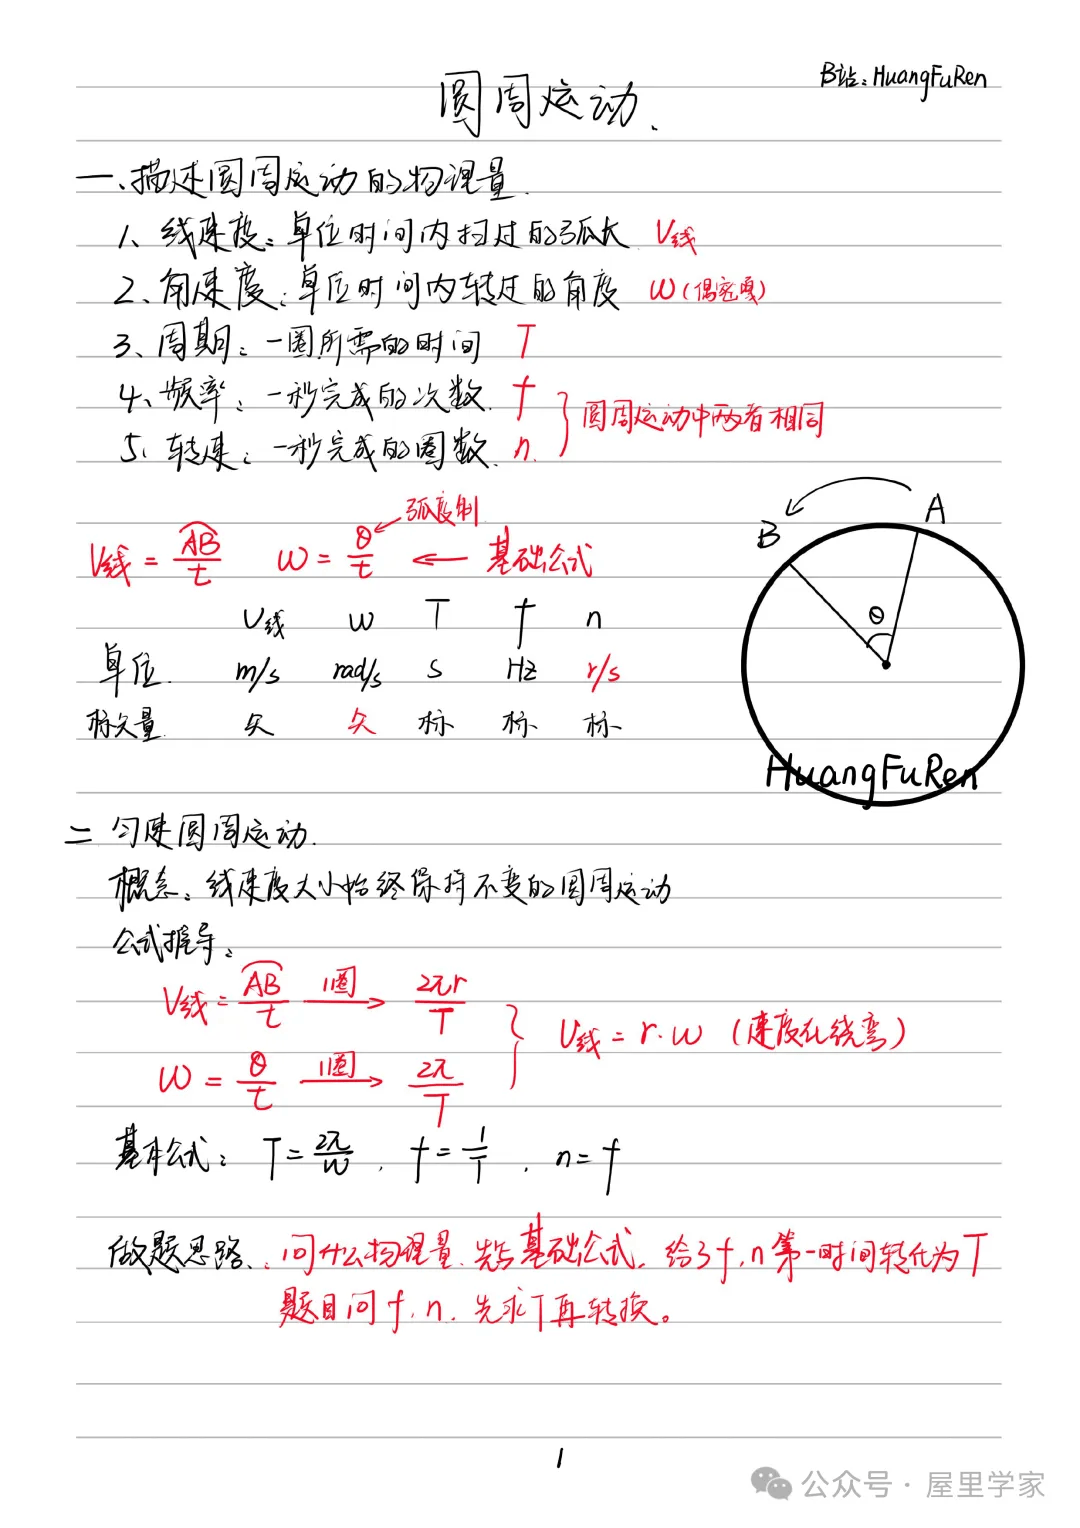 B站：HuangFuRen
圆周运动
一、描述圆周运动的物理量
1、线速度：单位时间内扫过的弧长 V线
2、角速度：单位时间内转过的角度 ω（偶密嘎）
3、周期：一圈所需的时间 T
4、频率：一秒完成的次数 f
5、转速：一秒完成的圈数 n
} 圆周运动中两者相同
V线 = AB/t ω = θ/t ← 基础公式
弧度制
V线 ω T f n
单位 m/s rad/s S Hz r/s
标矢量 矢 矢 标 标 标
A
B
θ
HuangFuRen
二 匀速圆周运动
概念：线速度大小始终保持不变的圆周运动
公式推导：
V线 = AB/t 1圈→ 2πr/T
ω = θ/t 1圈→ 2π/T
} V线 = r·ω （速度在线弯）
基本公式：T = 2π/ω ，f = 1/T ，n = f
做题思路：问什么物理量，先写基础公式，给了f、n第一时间转化为T
题目问f、n，先求T再转换。
1
公众号 · 屋里学家